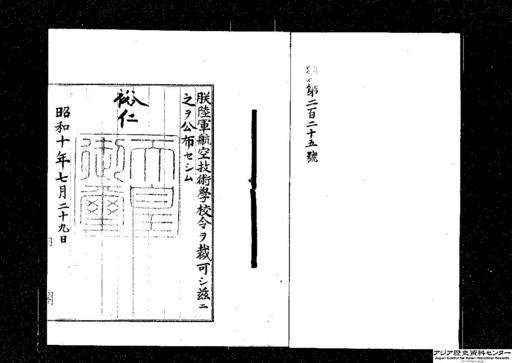 第二百二十五號
朕陸軍航空技術學校令ヲ裁可シ茲ニ
之ヲ公布セシム
裕仁
天皇御璽
昭和十年七月二十九日
アジア歴史資料センター
Japan Center for Asian Historical Records